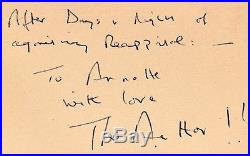 After Days & Nights of
agonising Reappraisal: —
To Annette
with love
The Author!!